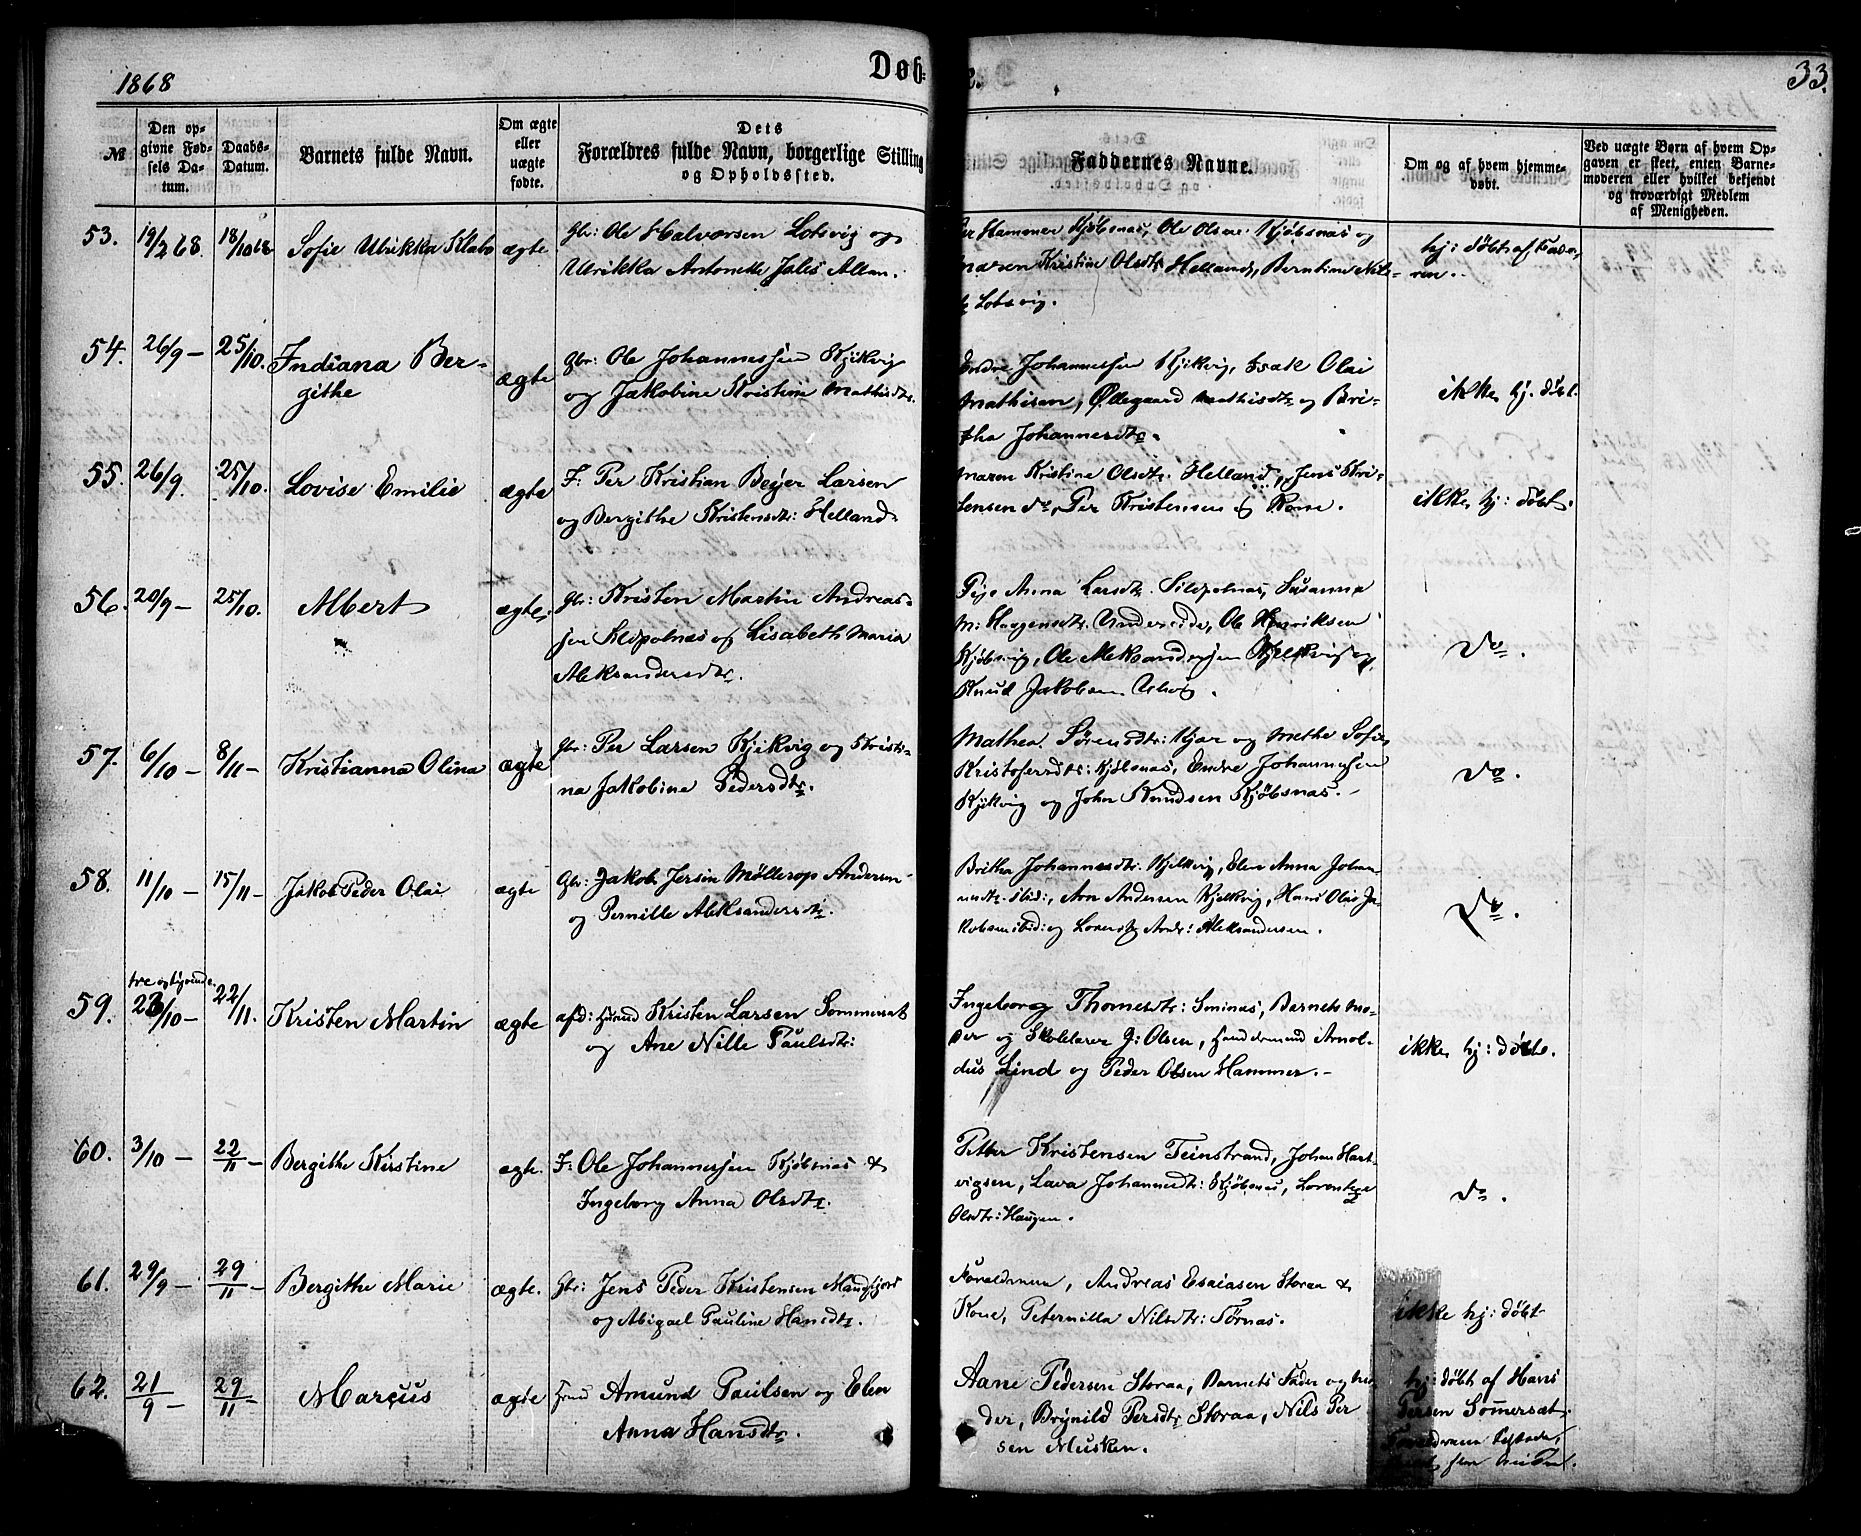 1868
Døb-
33.
№
Den opgivne Fødsels Datum.
Daabs-Datum.
Barnets fulde Navn.
Om ægte eller uægte fødte.
Dets Forældres fulde Navn, borgerlige Stilling og Opholdssted.
Faddernes Navne.
Om og af hvem hjemmedøbt.
Ved uægte Børn af hvem Opgaven er skeet, enten Barnemoderen eller hvilket bekjendt og troværdigt Medlem af Menigheden.
53. 19/2 68. 18/10 68 Sofie Ulrikka ægte Gbr: Ole Halvorsen Lotsvig og
Ulrikka Antonette Jales Allan.
Hammer Kjøbsnæs, Ole Olsen Kjøbsnæs og
Maren Kristine Olsdtr Helland, Berntine Nils-
Lotsvig.
hj: døbt af
54. 26/9 – 25/10. Indiana Ber-
githe
ægte
Gbr: Ole Johannessen Kjikvig
og Jakobine Kristine Mathisdtr.
Endre Johannessen Kjikvig, Isak Olai
Mathisen, Øllegaard Mathisdtr og Bri-
tha Johannesdtr.
ikke hj. døbt.
55. 26/9. 25/10. Lovise Emilie ægte F: Per Kristian Beyer Larsen
og Bergithe Kristensdtr: Helland.
Maren Kristine Olsdtr. Helland, Jens Kri-
stensen do, Per Kristensen & Kone.
ikke hj: døbt.
56. 20/9 – 25/10. Albert ægte. Gbr: Kristen Martin Andreas-
sen og Lisabeth Maria
Aleksandersdtr.
Pige Anna Larsdtr. Susanna
M: Haagensdtr. Ole Henriksen
Kjøbsvig, Ole Aleksandersen og
Knud Jakobsen
do.
57. 6/10 – 8/11 – Kristianna Olina ægte Gbr: Per Larsen Kjikvig og Kristi-
na Jakobine Pedersdtr.
Mathea Sørensdtr: Kjær og Methe Sofie
Kristofersdtr: Kjøbsnæs, Endre Johannessen
Kjikvig og John Knudsen Kjøbsnæs. –
do.
58. 11/10 – 15/11 – Jakob Peder Olai ægte Gbr: Jakob Jersin Møllerop Andersen
og Pernille Aleksandersdtr.
Britha Johannesdtr. Kjelkvig, Elen Anna Johan-
nesdtr. ibid:, Arn Andersen Kjelkvig, Hans Olai Ja-
kobsen ibid: og Lorents Andr: Aleksandersen.
do.
59. tre og tyvende.
23/10 – 22/11. Kristen Martin ægte afd: Hmd Kristen Larsen Sommerset
og Ane Nille Paulsdtr:
Ingeborg Thomesdtr: Sminæs, Barnets Mo-
der og Skolelærer J: Olsen, Handelsmand Arnol-
dus Lind og Peder Olsen Hammer. –
ikke hj: døbt.
60. 3/10 – 22/11 – Bergithe Kirstine ægte. F: Ole Johannessen Kjøbsnæs &
Ingeborg Anna Olsdtr.
Petter Kristensen Teinstrand, Johan Hart-
vigsen, Lava Johannesdtr: Kjøbsnæs, Lorentze
Olsdtr: Haugen.
do.
61. 29/9 – 29/11 – Bergithe Marie ægte. Gbr: Jens Peder Kristensen Mandfjord
og Abigael Pauline Hansdtr.
Forældrene, Andreas Esaiasen Storaa &
Kone, Peternilla Nilsdtr: Tørnæs.
ikke hj: døbt
62. 21/9 – 29/11 – Marcus ægte Hmd Amund Paulsen og Elen
Anna Hansdtr.
Aane Pedersen Storaa, Barnets Fader og Mo-
der, Brynild Persdtr Storaa, Nils Per
sen Musken.
hj: døbt af Hans
Persen Sommersæt.